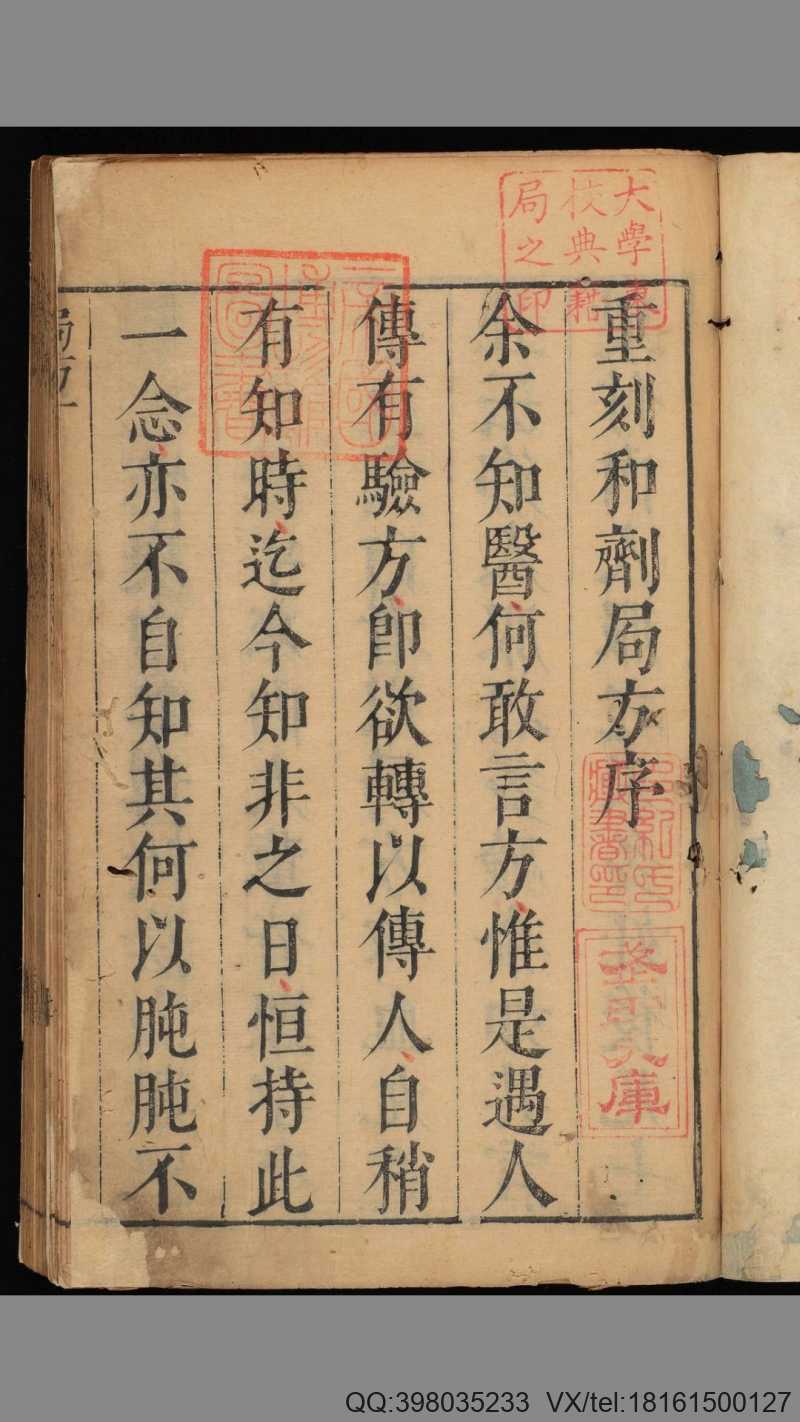 重刻和劑局方序
余不知醫何敢言方惟是遇人
傳有驗方即欲轉以傳人自稍
有知時迄今知非之日恒持此
一念亦不自知其何以肫肫不
大學東
校典籍
局之印
QQ:398035233 VX/tel:18161500127